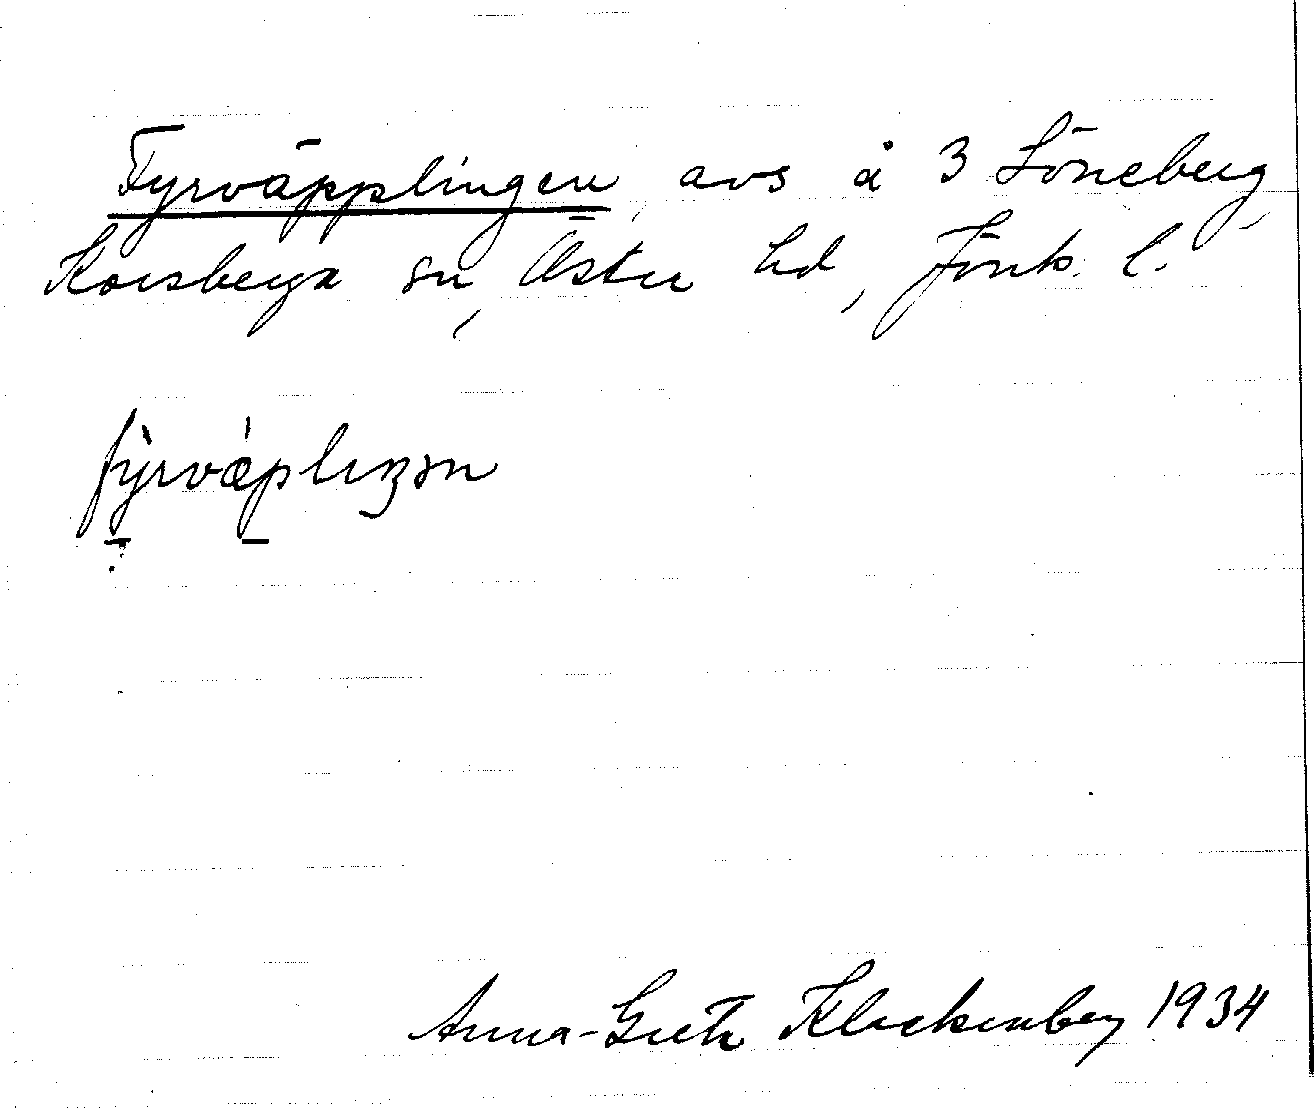 Fyrväpplingen, avs å 3 Löneberg,
Korsberga sn, Östra hd, Jönk. l.
fỳ̠rvæ̀p̠lıŋən
Anna-Greta Klockenberg 1934